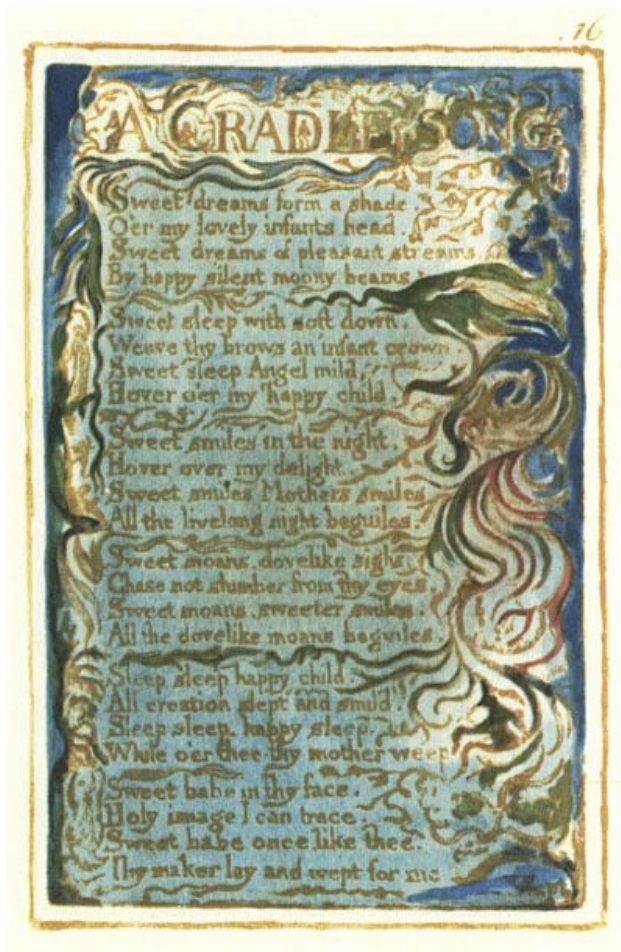 .16
A CRADLE SONG
Sweet dreams form a shade.
O'er my lovely infants head.
Sweet dreams of pleasant streams.
By happy silent moony beams.
Sweet sleep with soft down.
Weave thy brows an infant crown.
Sweet sleep Angel mild.
Hover o'er my happy child.
Sweet smiles in the night.
Hover over my delight.
Sweet smiles Mothers smiles
All the livelong night beguiles.
Sweet moans, dovelike sighs,
Chase not slumber from thy eyes
Sweet moans, sweeter smiles.
All the dovelike moans beguiles.
Sleep sleep happy child.
All creation slept and smil'd.
Sleep sleep, happy sleep,
While o'er thee thy mother weep
Sweet babe in thy face.
Holy image I can trace.
Sweet babe once like thee.
Thy maker lay and wept for me